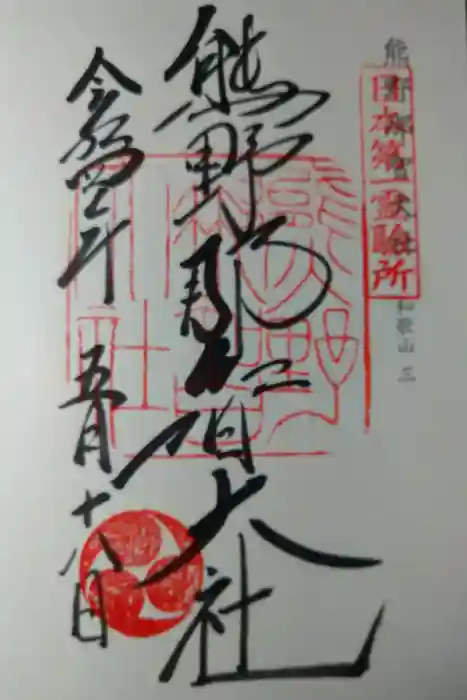 熊野那智大社 和歌山 三
日本第一霊験所
熊野那智大社
令和四年 五月十八日